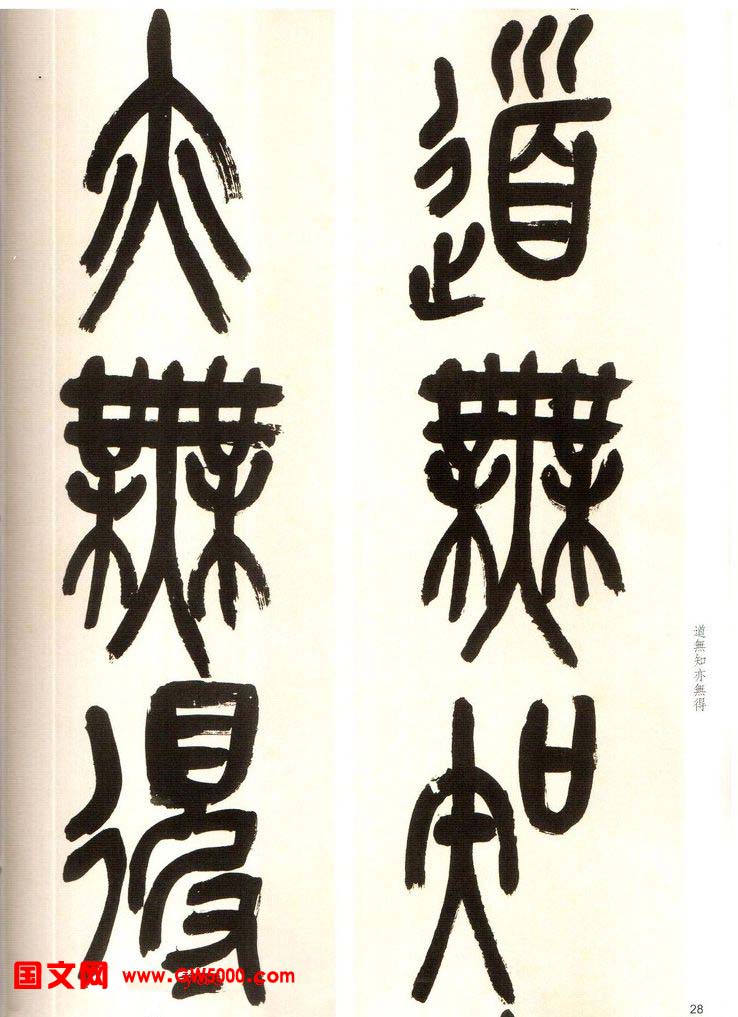 道無知
亦無得
道無知亦無得
国文网 www.GW5000.com
28